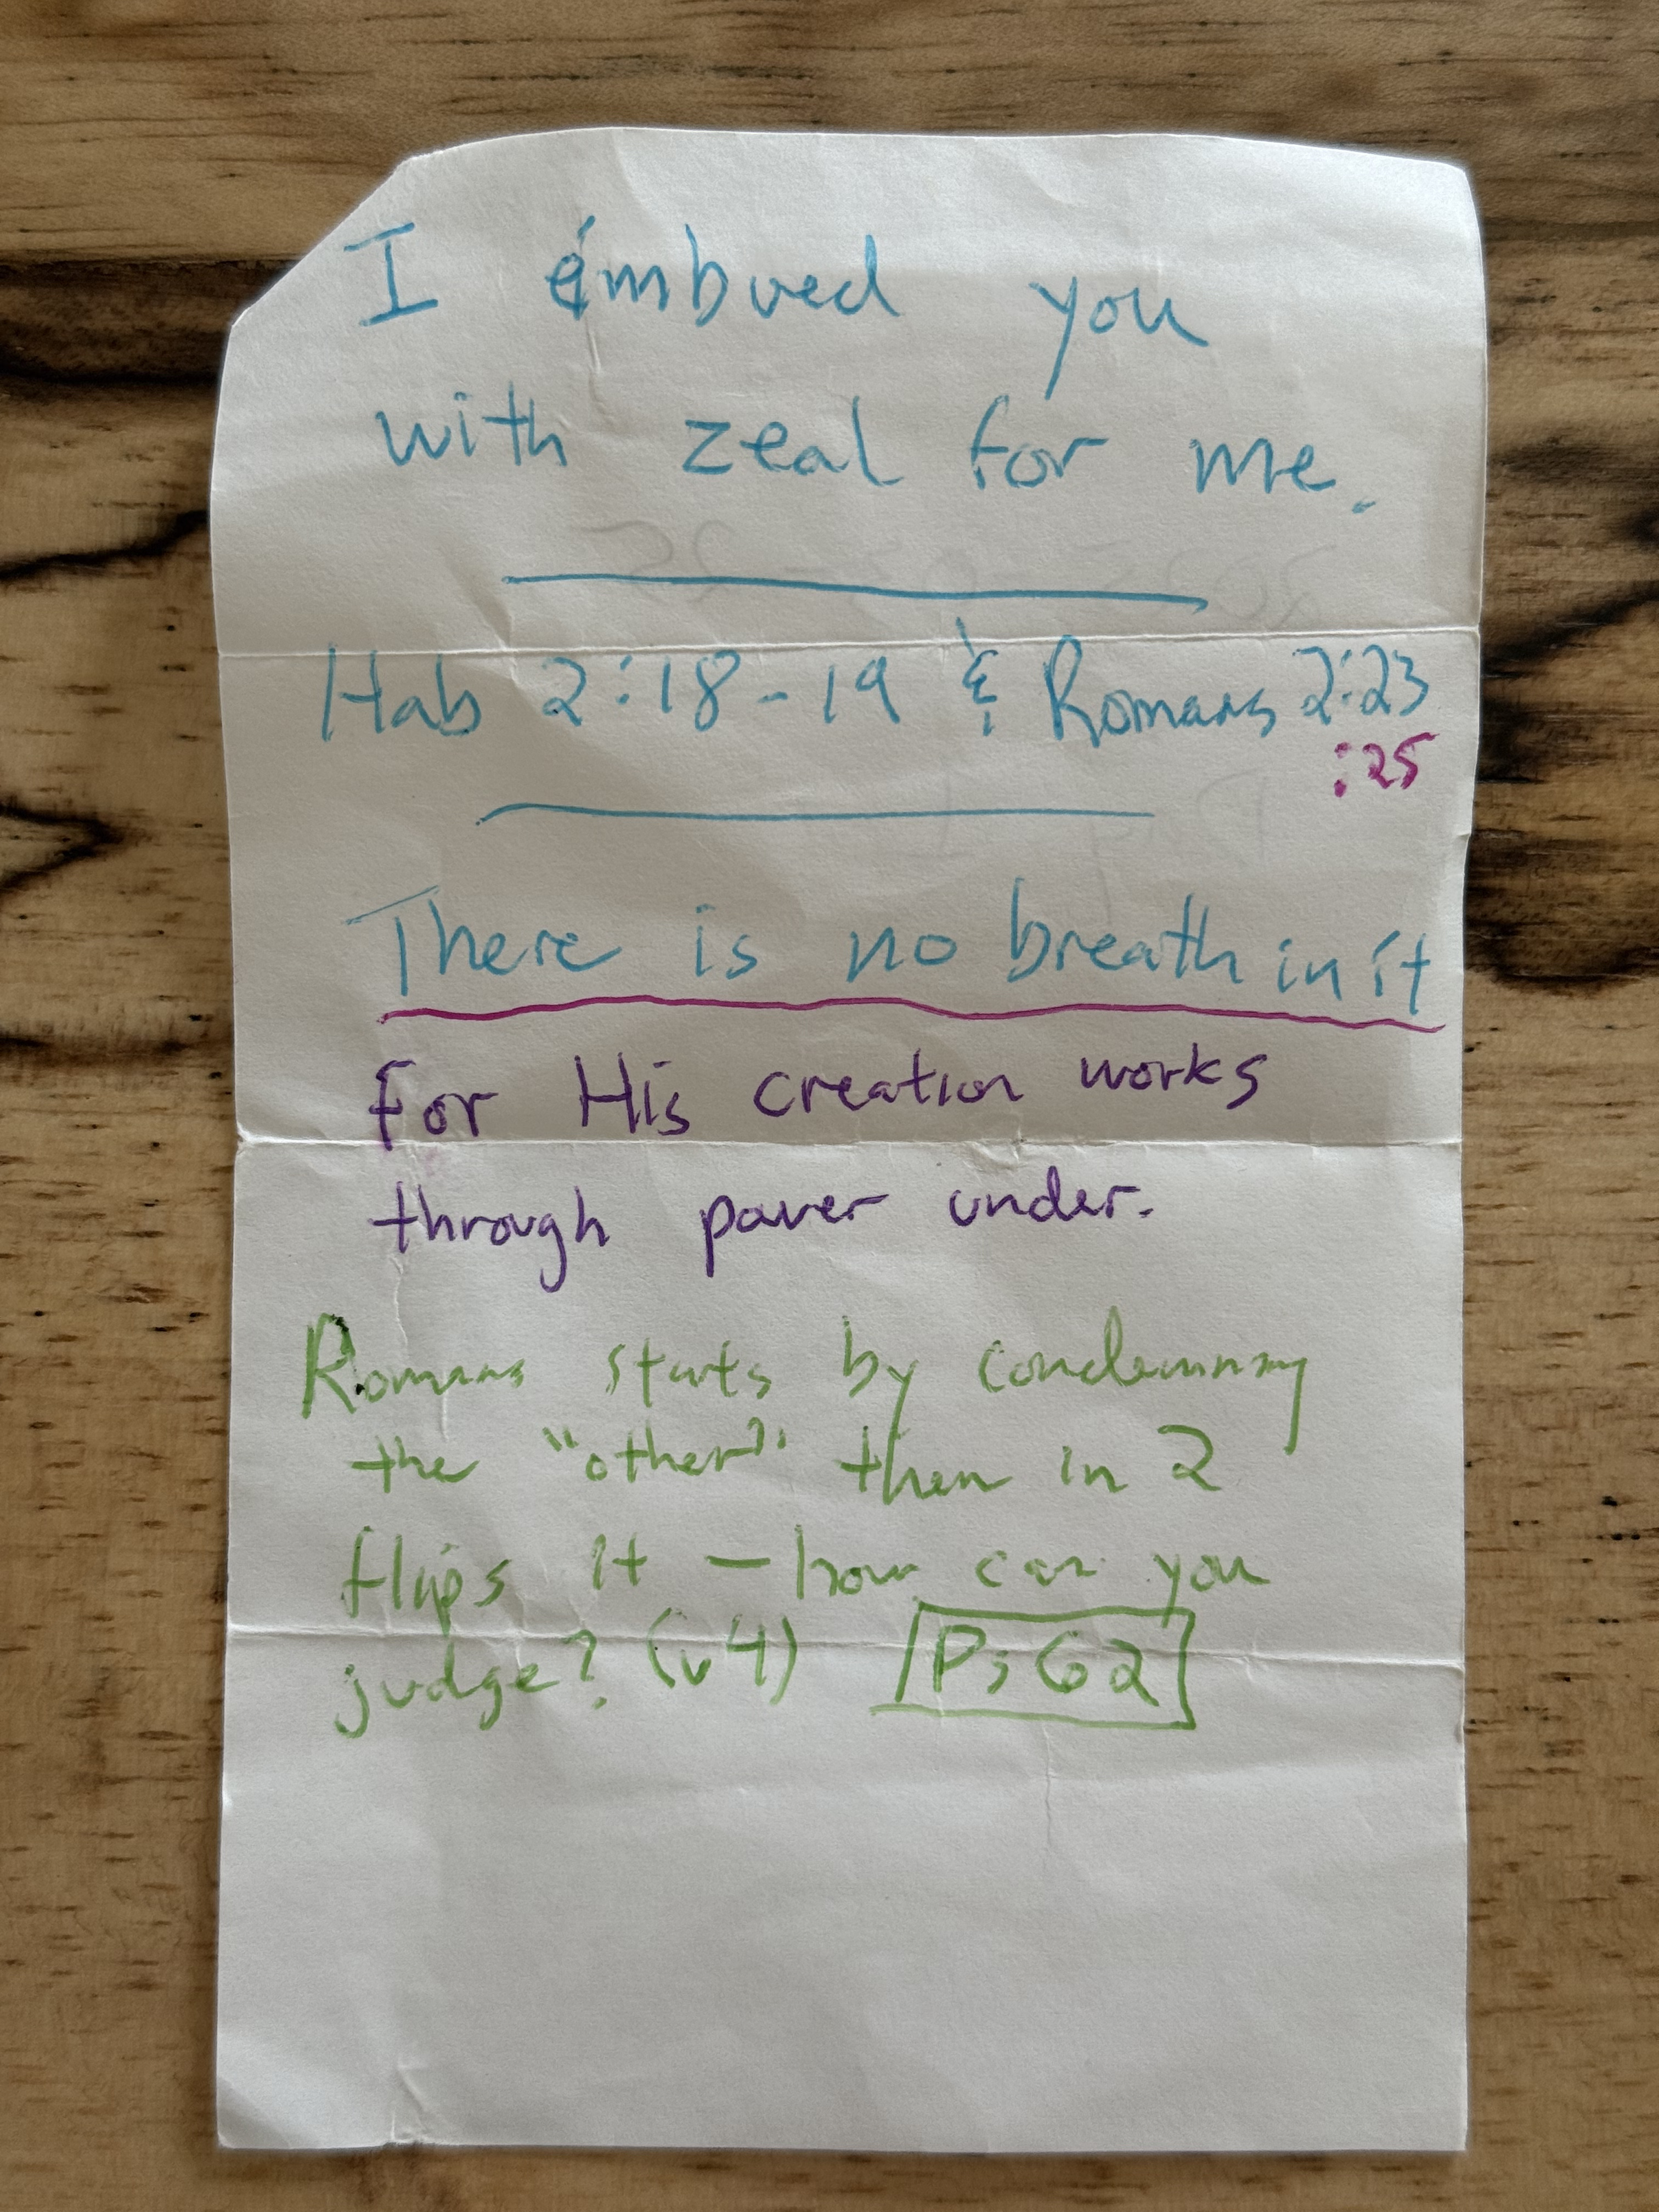 I imbued you
with zeal for me.
Hab 2:18-19 & Romans 2:23
:25
There is no breath in it
For His creation works
through power under.
Romans starts by condemning
the "other" then in 2
flips it – how can you
judge? (v4) Ps 62